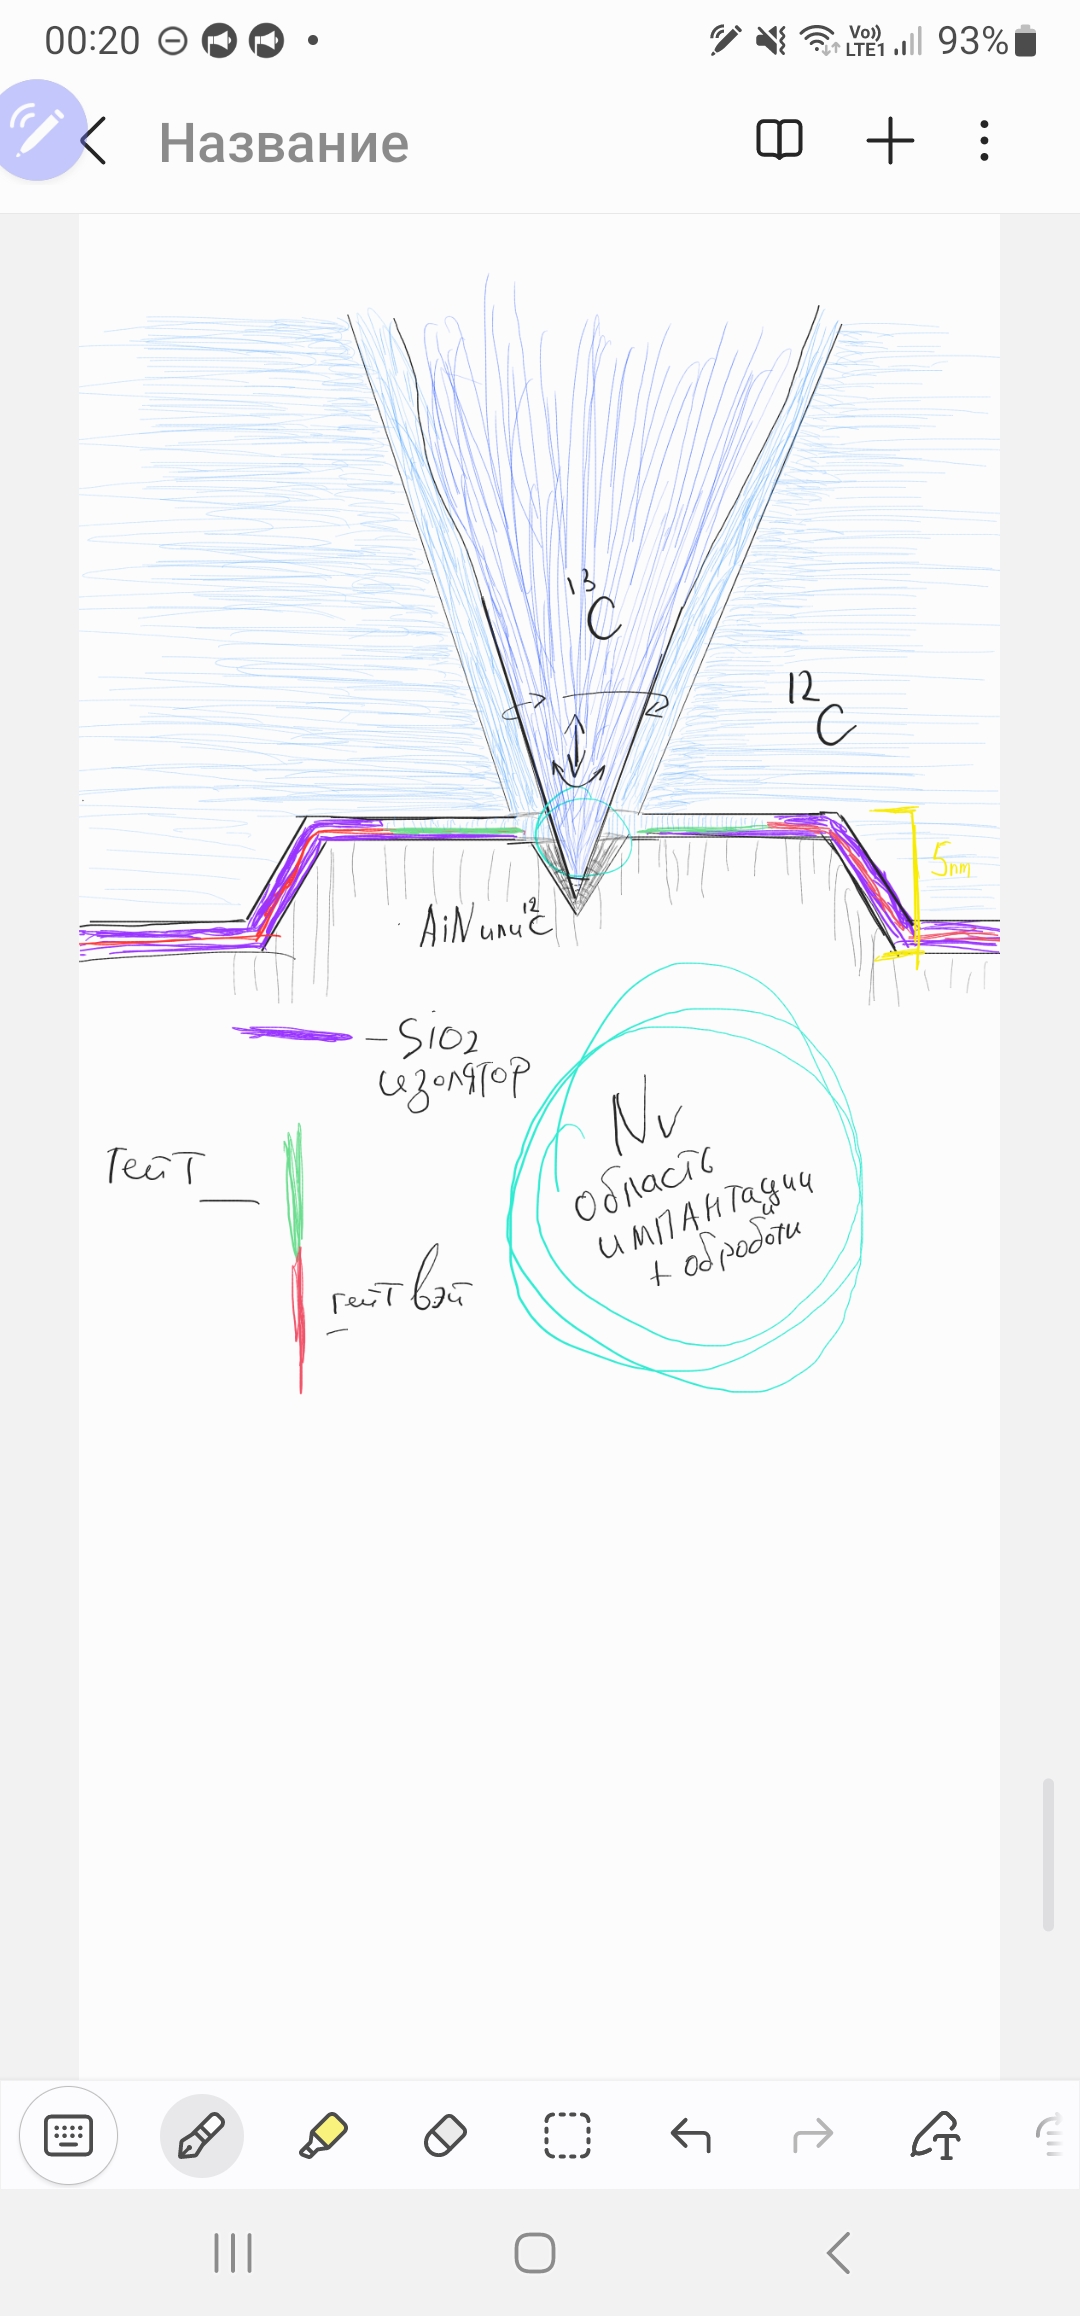 00:20
Vo))
LTE1
93%
Название
13
C
12
C
5nm
AiN или 12C
– SiO2
изолятор
Гейт
гейт вэй
Nv
область
импантации
+ обработи